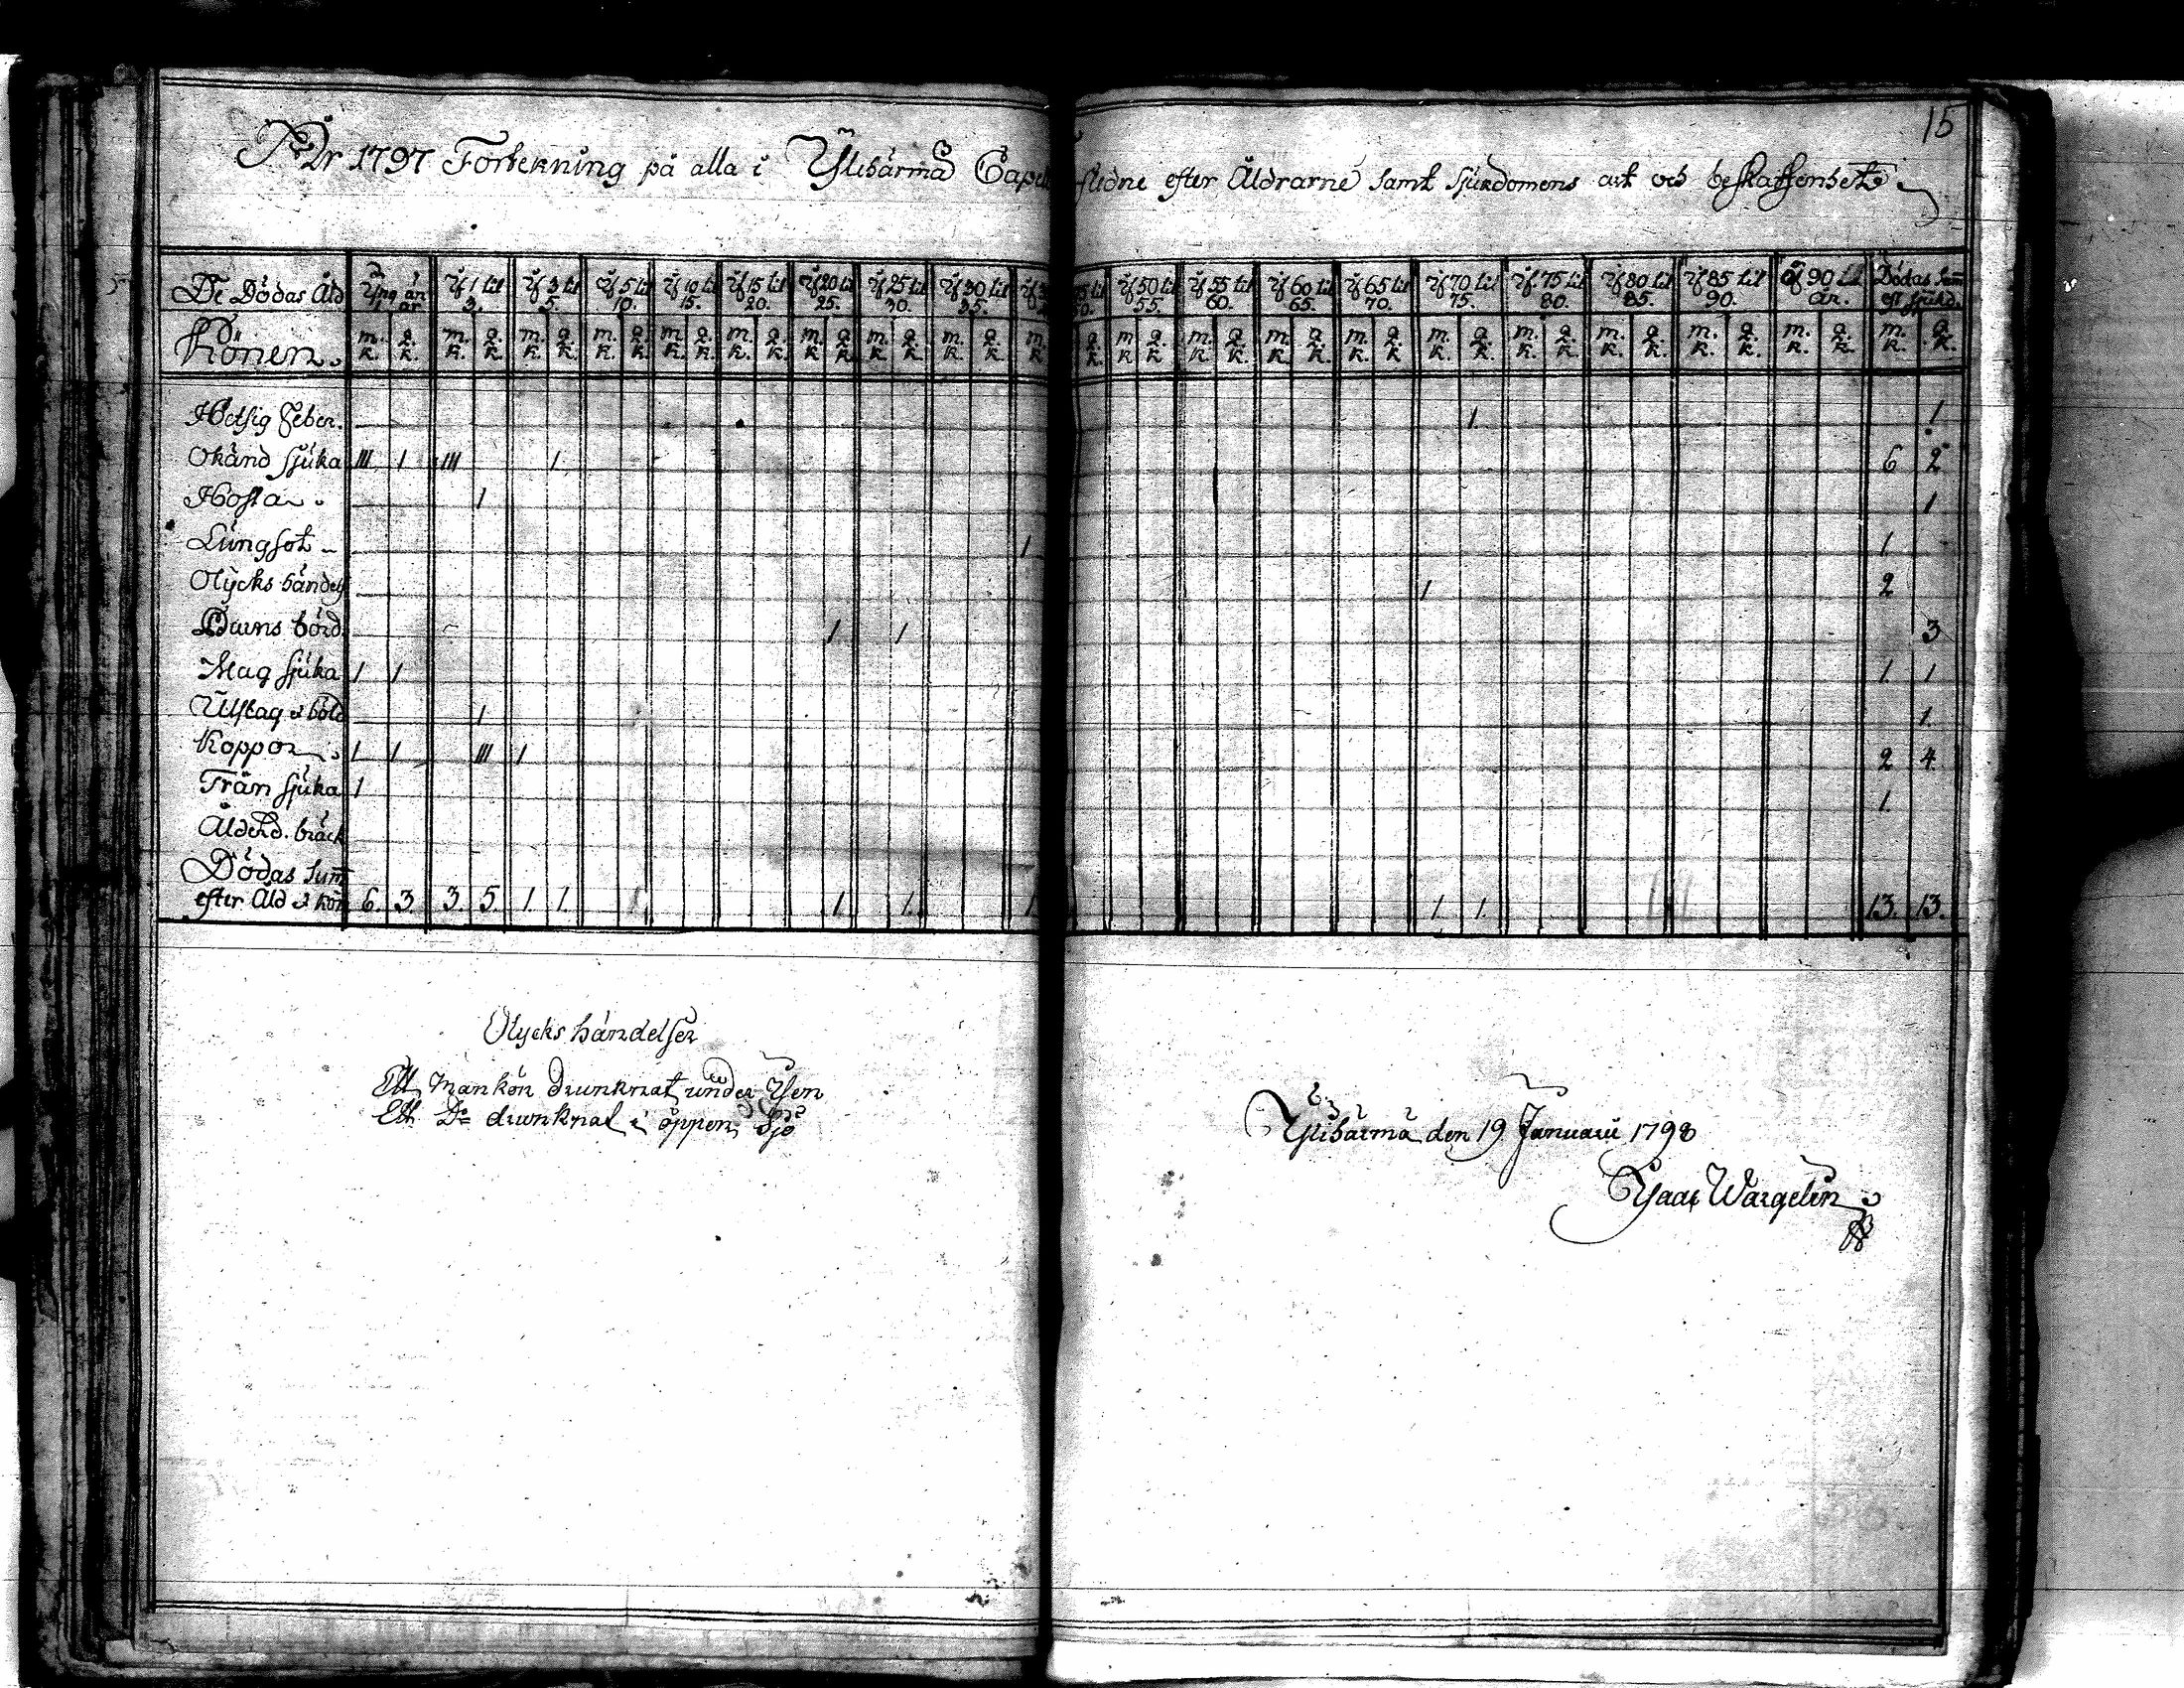 15
År 1797 Förtekning på alla i Ylihärmä Capell flidne efter Åldrarne samt sjukdomens art och beskaffenhet.
De Dödas Åld. Yng än 1 år Af 1 til 3. Af 3 til 5. Af 5 til 10. Af 10 til 15. Af 15 til 20. Af 20 til 25. Af 25 til 30. Af 30 til 35. Af 50 til 55. Af 55 til 60. Af 60 til 65. Af 65 til 70. Af 70 til 75. Af 75 til 80. Af 80 til 85. Af 85 til 90. Af 90 til år. Dödas Sum eft sjukd.
Könen. m.k. q.k. m.k. q.k. m.k. q.k. m.k. q.k. m.k. q.k. m.k. q.k. m.k. q.k. m.k. q.k. m.k. q.k. m.k. q.k. m.k. q.k. m.k. q.k. m.k. q.k. m.k. q.k. m.k. q.k. m.k. q.k. m.k. q.k. m.k. q.k. m.k. q.k. m.k. q.k.
Hetsig Feber. 1 1
Okänd sjuka III 1 III 1 6 2
Hosta 1 1
Lungsot 1 1
Olycks händels 1 2
Barns börd 1 1 3
Mag sjuka 1 1 1 1
Utslag o böld 1 1.
Koppor 1 1 III 1 2 4
Trån sjuka 1 1
Ålderd. bräck
Dödas Sum
efter Åld o kön 6. 3. 3. 5. 1. 1. 1 1. 1. 1 1. 1. 13. 13.
Olycks händelser
Ett Mankön drunknat under Isen
Ett Do drunknat i öppen Sjö
Ylihärmä den 19 Januarii 1798
Isaac Wargelin